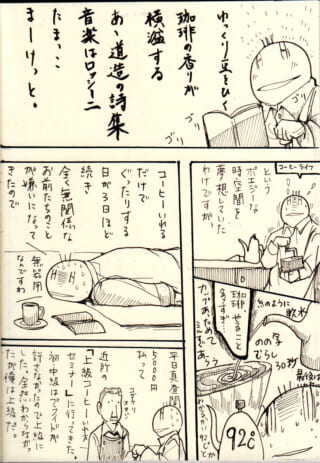 ゆっくり豆をひく
珈琲の香りが
横溢する
あゝ道造の詩集
音楽はロッシーニ
たまっこ
まーけっと。
ゴリ
ゴリ
ゴリ
コーヒーライフ
という
ポエジーな
時空間を
夢想していた
わけですが
コーヒーいれる
だけで
ぐったりする
日が3日ほど
続き
全く無関係な
お前たちのこと
が嫌いになって
きたので
無器用
なんですわ
糸のように
軟水
のの字
むらし
30秒
珈琲やること
多すぎ…
カップあたためて
92℃
平日真昼間
5000円
払って
近所の
「上級コーヒーいれ方
セミナー」に行ってきた。
初中級はプライドが
許さなかったので上級に
した。全然わからなか
たが俺は上級だ。